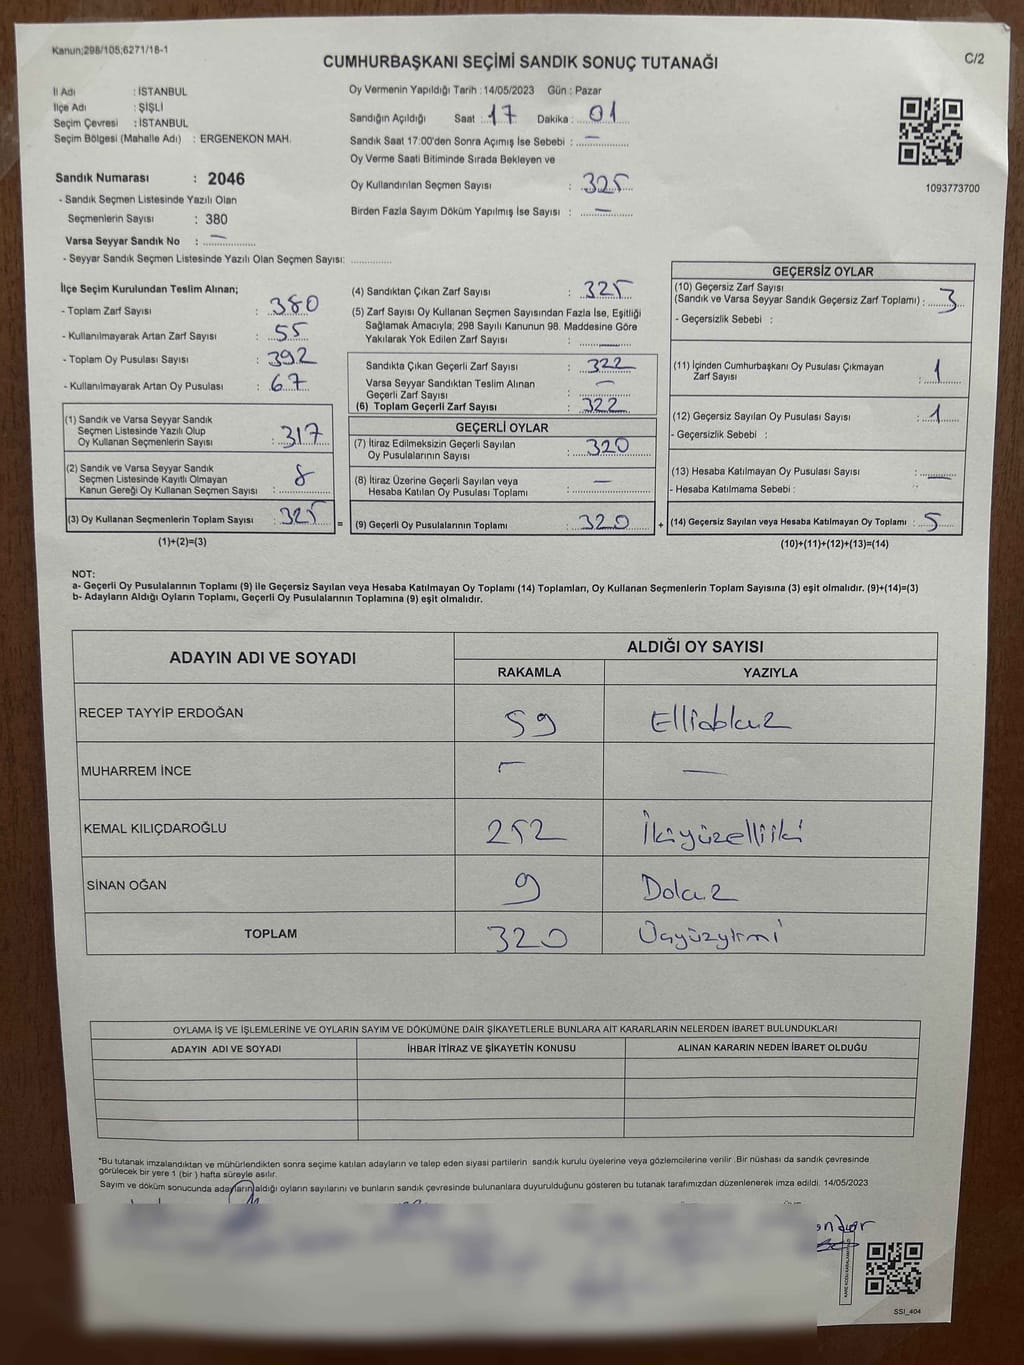 Kanun;298/105;6271/18-1
C/2
CUMHURBAŞKANI SEÇİMİ SANDIK SONUÇ TUTANAĞI
İl Adı : İSTANBUL
İlçe Adı : ŞİŞLİ
Seçim Çevresi : İSTANBUL
Seçim Bölgesi (Mahalle Adı) : ERGENEKON MAH.
Sandık Numarası : 2046
- Sandık Seçmen Listesinde Yazılı Olan
Seçmenlerin Sayısı : 380
Varsa Seyyar Sandık No : —
- Seyyar Sandık Seçmen Listesinde Yazılı Olan Seçmen Sayısı: ............
Oy Vermenin Yapıldığı Tarih :14/05/2023 Gün : Pazar
Sandığın Açıldığı Saat : 17 Dakika : 01
Sandık Saat 17:00'den Sonra Açımış İse Sebebi : —
Oy Verme Saati Bitiminde Sırada Bekleyen ve
Oy Kullandırılan Seçmen Sayısı : 325
Birden Fazla Sayım Döküm Yapılmış İse Sayısı : —
1093773700
İlçe Seçim Kurulundan Teslim Alınan;
- Toplam Zarf Sayısı : 380
- Kullanılmayarak Artan Zarf Sayısı : 55
- Toplam Oy Pusulası Sayısı : 392
- Kullanılmayarak Artan Oy Pusulası : 67
(1) Sandık ve Varsa Seyyar Sandık
Seçmen Listesinde Yazılı Olup
Oy Kullanan Seçmenlerin Sayısı : 317
(2) Sandık ve Varsa Seyyar Sandık
Seçmen Listesinde Kayıtlı Olmayan
Kanun Gereği Oy Kullanan Seçmen Sayısı : 8
(3) Oy Kullanan Seçmenlerin Toplam Sayısı : 325
(1)+(2)=(3)
(4) Sandıktan Çıkan Zarf Sayısı : 325
(5) Zarf Sayısı Oy Kullanan Seçmen Sayısından Fazla İse, Eşitliği
Sağlamak Amacıyla; 298 Sayılı Kanunun 98. Maddesine Göre
Yakılarak Yok Edilen Zarf Sayısı : —
Sandıkta Çıkan Geçerli Zarf Sayısı : 322
Varsa Seyyar Sandıktan Teslim Alınan
Geçerli Zarf Sayısı : —
(6) Toplam Geçerli Zarf Sayısı : 322
GEÇERLİ OYLAR
(7) İtiraz Edilmeksizin Geçerli Sayılan
Oy Pusulalarının Sayısı : 320
(8) İtiraz Üzerine Geçerli Sayılan veya
Hesaba Katılan Oy Pusulası Toplamı : —
= (9) Geçerli Oy Pusulalarının Toplamı : 320
GEÇERSİZ OYLAR
(10) Geçersiz Zarf Sayısı
(Sandık ve Varsa Seyyar Sandık Geçersiz Zarf Toplamı) : 3
- Geçersizlik Sebebi :
(11) İçinden Cumhurbaşkanı Oy Pusulası Çıkmayan
Zarf Sayısı : 1
(12) Geçersiz Sayılan Oy Pusulası Sayısı : 1
- Geçersizlik Sebebi :
(13) Hesaba Katılmayan Oy Pusulası Sayısı : —
- Hesaba Katılmama Sebebi :
+ (14) Geçersiz Sayılan veya Hesaba Katılmayan Oy Toplamı : 5
(10)+(11)+(12)+(13)=(14)
NOT:
a- Geçerli Oy Pusulalarının Toplamı (9) ile Geçersiz Sayılan veya Hesaba Katılmayan Oy Toplamı (14) Toplamları, Oy Kullanan Seçmenlerin Toplam Sayısına (3) eşit olmalıdır. (9)+(14)=(3)
b- Adayların Aldığı Oyların Toplamı, Geçerli Oy Pusulalarının Toplamına (9) eşit olmalıdır.
ADAYIN ADI VE SOYADI
ALDIĞI OY SAYISI
RAKAMLA YAZIYLA
RECEP TAYYİP ERDOĞAN 59 Ellidokuz
MUHARREM İNCE — —
KEMAL KILIÇDAROĞLU 252 İkiyüzelliiki
SİNAN OĞAN 9 Dokuz
TOPLAM 320 Üçyüzyirmi
OYLAMA İŞ VE İŞLEMLERİNE VE OYLARIN SAYIM VE DÖKÜMÜNE DAİR ŞİKAYETLERLE BUNLARA AİT KARARLARIN NELERDEN İBARET BULUNDUKLARI
ADAYIN ADI VE SOYADI İHBAR İTİRAZ VE ŞİKAYETİN KONUSU ALINAN KARARIN NEDEN İBARET OLDUĞU
*Bu tutanak imzalandıktan ve mühürlendikten sonra seçime katılan adayların ve talep eden siyasi partilerin sandık kurulu üyelerine veya gözlemcilerine verilir .Bir nüshası da sandık çevresinde
görülecek bir yere 1 (bir) hafta süreyle asılır.
Sayım ve döküm sonucunda adayların aldığı oyların sayılarını ve bunların sandık çevresinde bulunanlara duyurulduğunu gösteren bu tutanak tarafımızdan düzenlenerek imza edildi. 14/05/2023
SSI_404